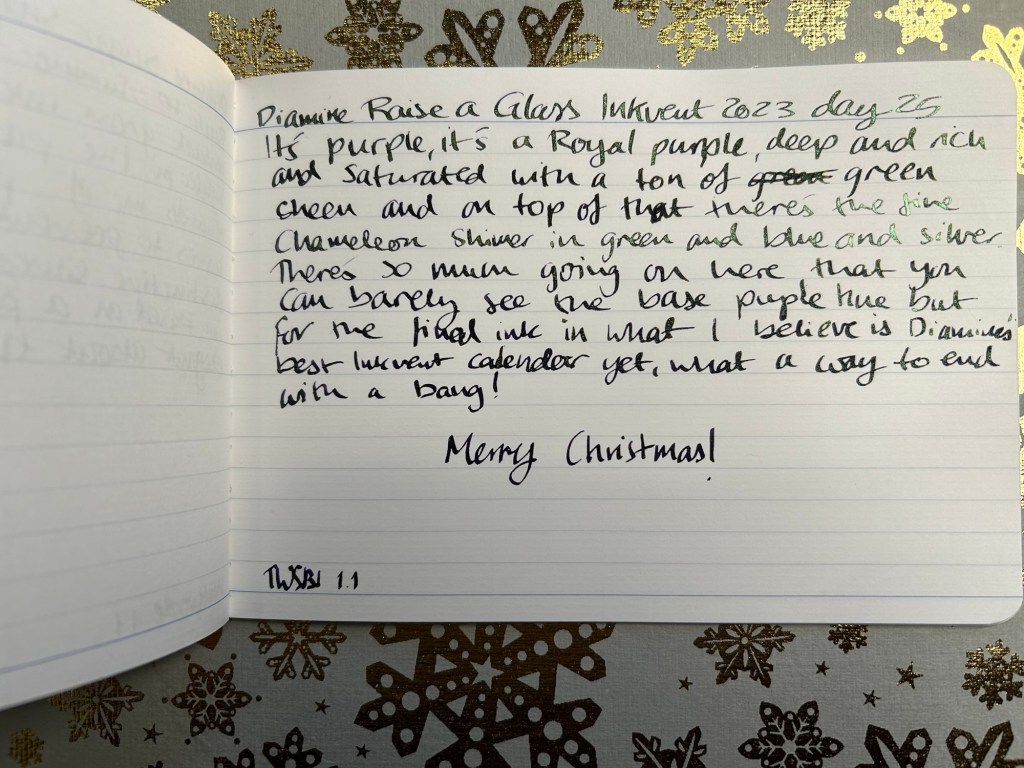 Diamine Raise a Glass Inkvent 2023 day 25
It's purple, it's a Royal purple, deep and rich
and saturated with a ton of green green
sheen and on top of that there's the fine
Chameleon shimer in green and blue and silver.
There's so much going on here that you
can barely see the base puple hue but
for the final ink in what I believe is Diamines'
best Inkvent calender yet, what a way to end
with a bang!
Merry Christmas!
TWSBI 1.1